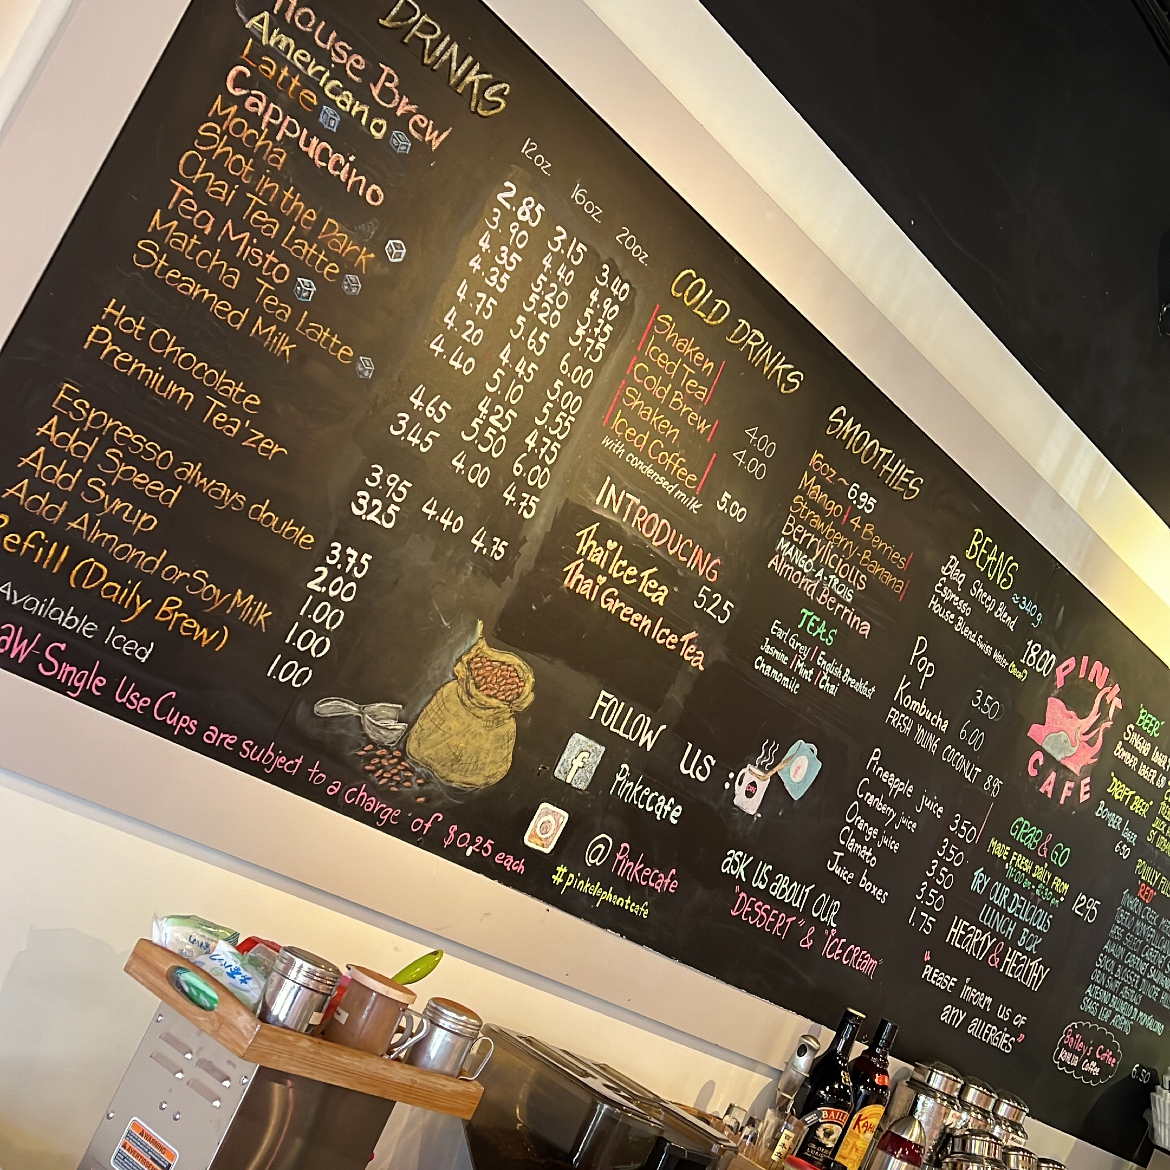 DRINKS
House Brew
Americano
Latte
Cappuccino
Mocha
Shot in the Dark
Chai Tea Latte
Tea Misto
Matcha Tea Latte
Steamed Milk
Hot Chocolate
Premium Tea'zer
Espresso always double
Add Speed
Add Syrup
Add Almond or Soy Milk
Refill (Daily Brew)
Available Iced
Single Use Cups are subject to a charge of $0.25 each
12oz. 16oz. 20oz.
2.85 3.15 3.40
3.90 4.40 4.90
4.35 5.20 5.75
4.35 5.20 5.75
4.75 5.65 6.00
4.20 4.45 5.00
4.40 5.10 5.55
4.25 4.75
4.65 5.50 6.00
3.45 4.00 4.75
3.95 4.40 4.75
3.25
3.75
2.00
1.00
1.00
1.00
COLD DRINKS
Shaken
Iced Tea
4.00
Cold Brew
4.00
Shaken
Iced Coffee
with condensed milk
5.00
INTRODUCING
Thai Ice Tea
5.25
Thai Green Ice Tea
FOLLOW US :
f Pinkecafe
@ Pinkecafe
#pinkelephantcafe
SMOOTHIES
16oz ~ 6.95
Mango | 4 Berries
Strawberry-Banana
Berrylicious
MANGO-A-TROIS
Almond Berrina
TEAS
Earl Grey | English Breakfast
Jasmine | Mint | Chai
Chamomile
ASK US ABOUT OUR
"DESSERT" & "ICE CREAM"
BEANS ~340g
Blaq Sheep Blend
Espresso
House Blend Swiss Water (Decaf)
18.00
Pop 3.50
Kombucha 6.00
FRESH YOUNG COCONUT 8.95
Pineapple juice 3.50
Cranberry juice 3.50
Orange juice 3.50
Clamato 3.50
Juice boxes 1.75
PINK
CAFE
GRAB & GO
MADE FRESH DAILY FROM
TRY OUR DELICIOUS
LUNCH BOX
12.95
HEARTY & HEALTHY
"PLEASE INFORM US OF
ANY ALLERGIES"
"BEER"
"DRAFT BEER"
BOMBER
6.50
"RED"
Bailey's Coffee
Kahlua Coffee
6.50
WARNING